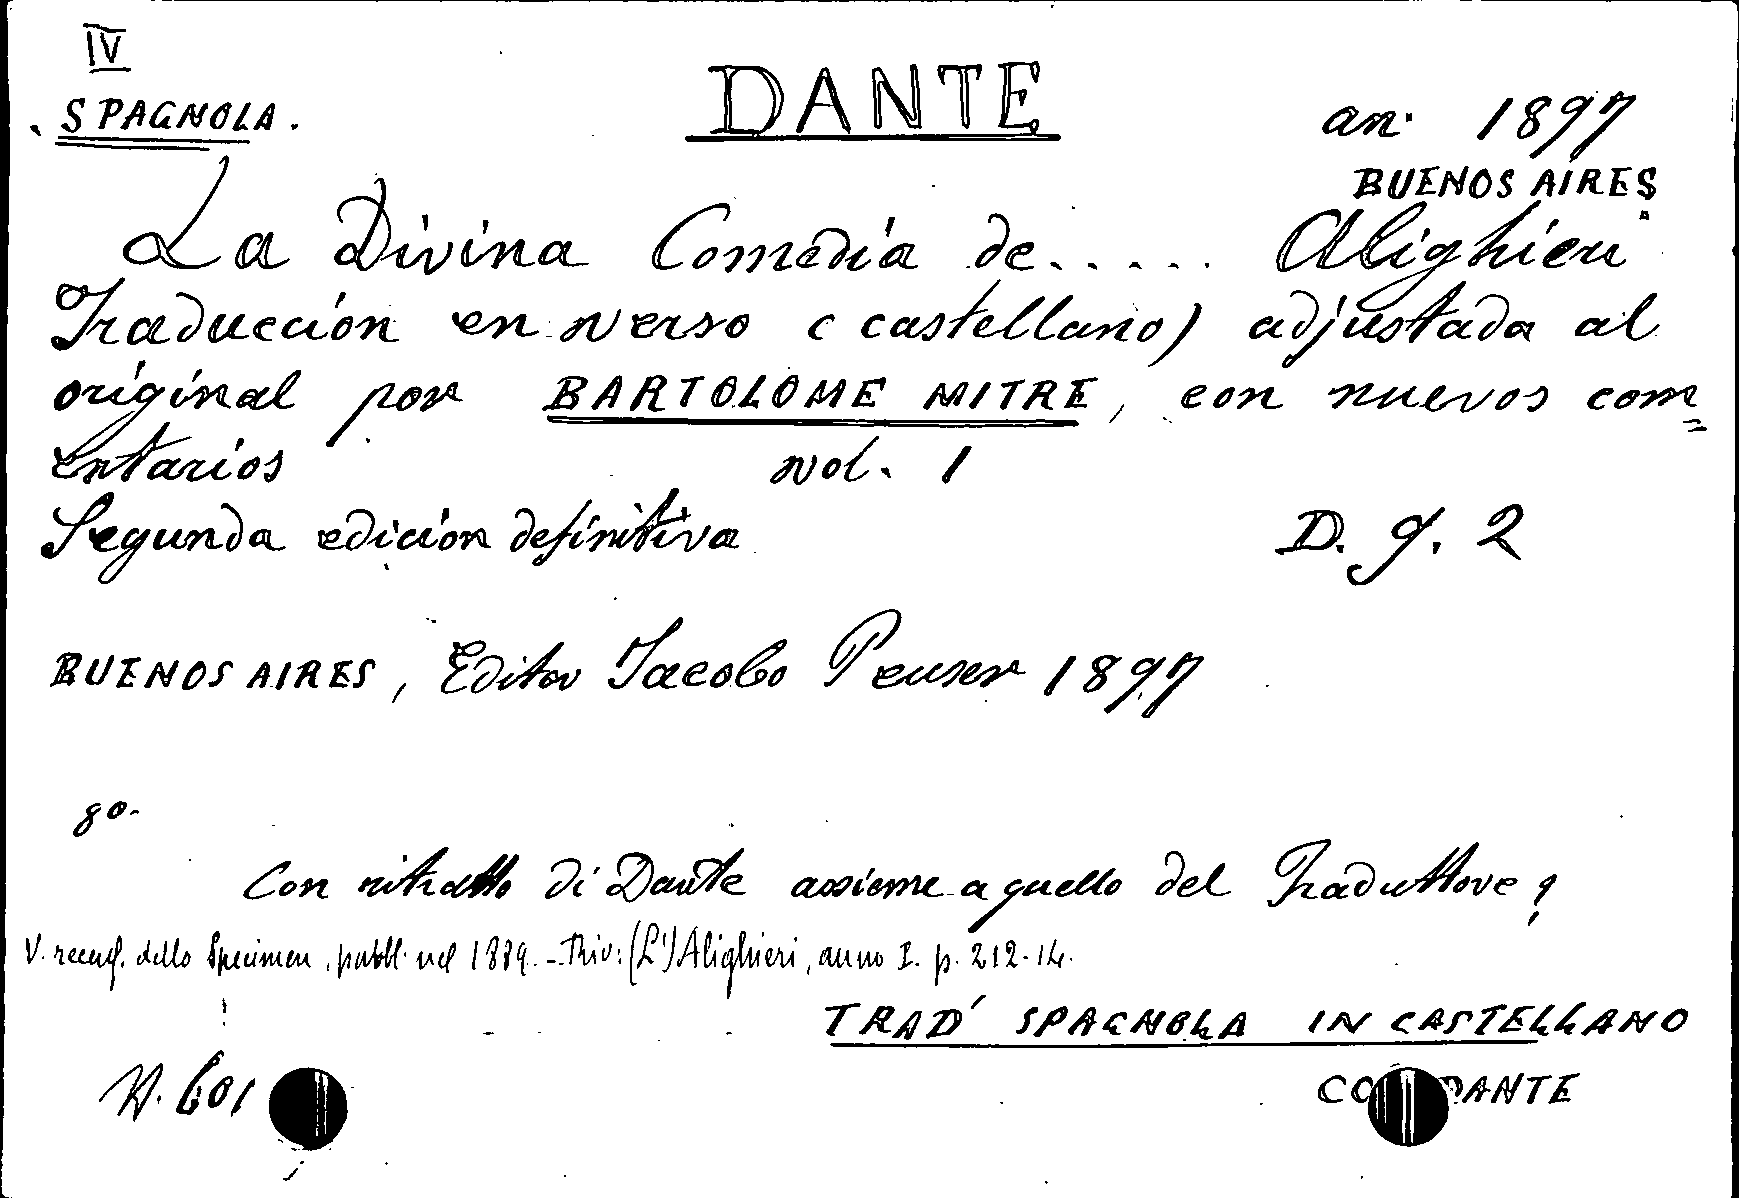 IV
SPAGNOLA.
DANTE
an. 1897
BUENOS AIRES
La Divina Comedia de..... Alighieri
Traducción en verso (castellano) adjustada al
original por BARTOLOME MITRE, con nuevos com=
entarios vol. 1
Segunda edición definitiva D. g. 2
BUENOS AIRES, Editor Jacobo Peuser 1897
8º-
Con ritratto di Dante assieme a quello del Traduttore;
V. recens. dello Specimen, pubbl. nel 1889. - Riv: (L')Alighieri, anno I. p. 212-14.
TRAD' SPAGNOLA IN CASTELLANO
N. 601
CO DANTE